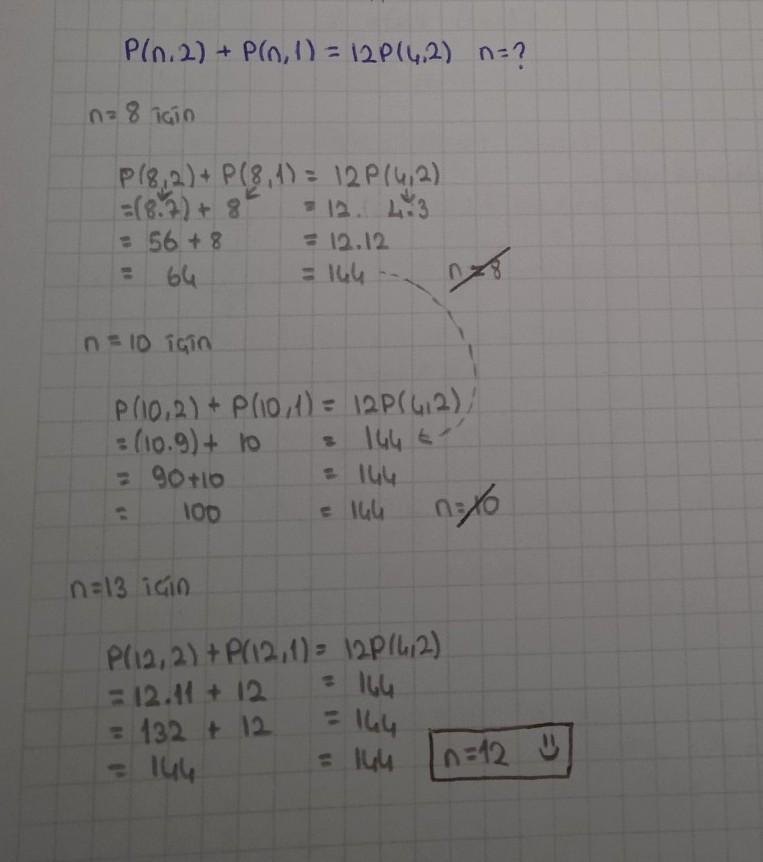 P(n,2) + P(n,1) = 12P(4,2) n=?
n= 8 için
P(8,2) + P(8,1) = 12P(4,2)
=(8.7) + 8 = 12. 4.3
= 56 + 8 = 12.12
= 64 = 144 n=8
n = 10 için
P(10,2) + P(10,1) = 12P(4,2)
=(10.9) + 10 = 144
= 90+10 = 144
= 100 = 144 n=10
n=13 için
P(12,2) + P(12,1) = 12P(4,2)
= 12.11 + 12 = 144
= 132 + 12 = 144
= 144 = 144 n=12